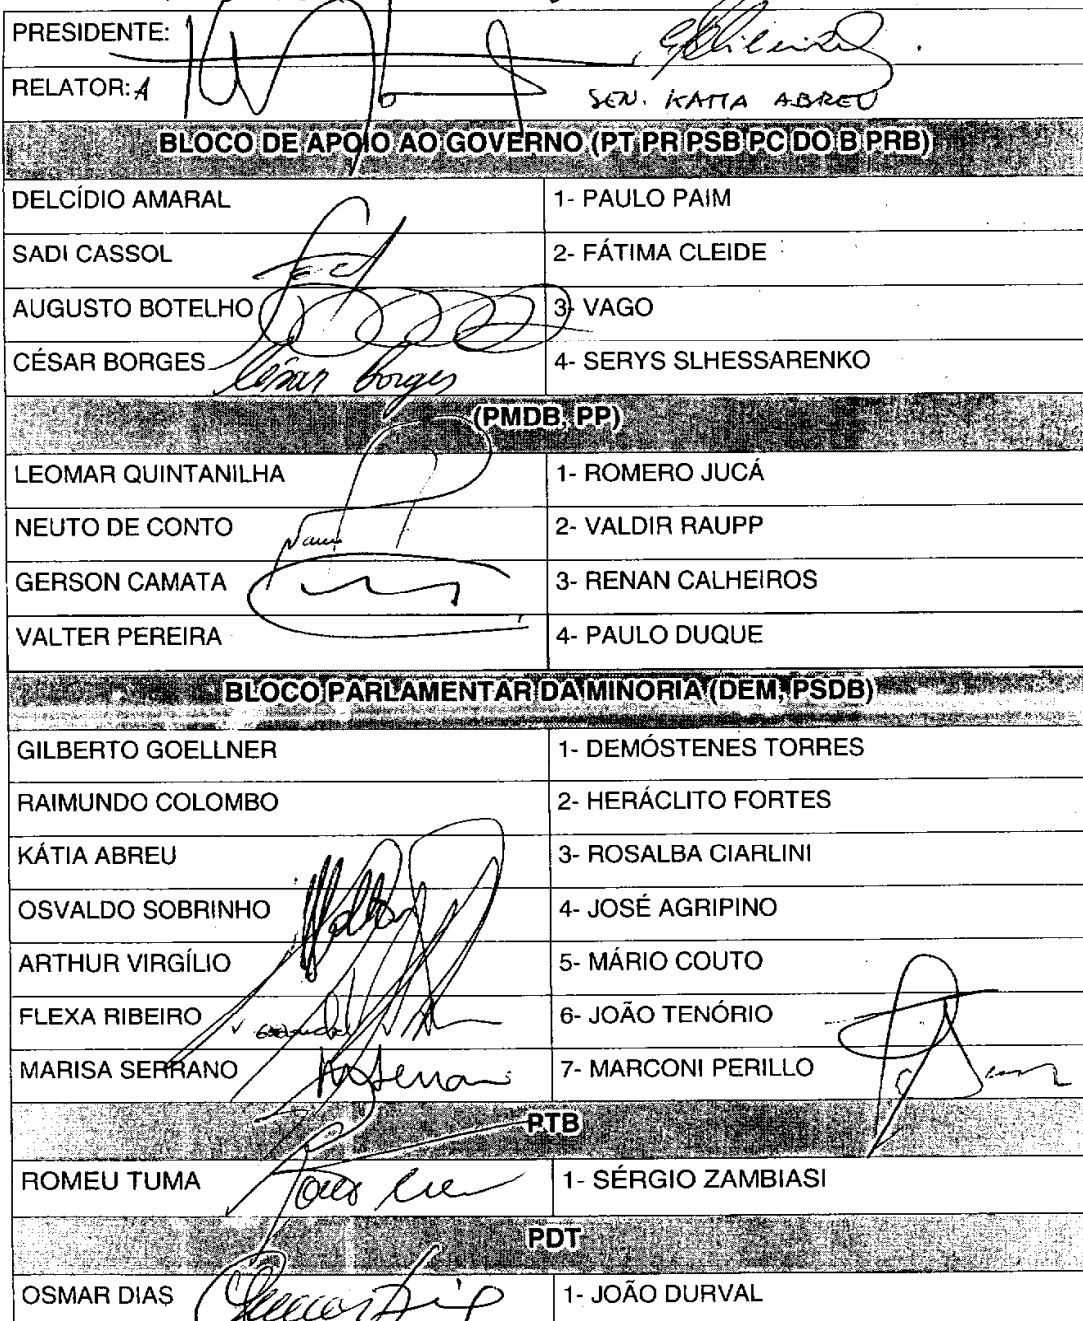 PRESIDENTE:
RELATOR: A SEN. KATIA ABREU
BLOCO DE APOIO AO GOVERNO (PT PR PSB PC DO B PRB)
DELCÍDIO AMARAL 1- PAULO PAIM
SADI CASSOL 2- FÁTIMA CLEIDE
AUGUSTO BOTELHO 3- VAGO
CÉSAR BORGES César Borges 4- SERYS SLHESSARENKO
(PMDB, PP)
LEOMAR QUINTANILHA 1- ROMERO JUCÁ
NEUTO DE CONTO 2- VALDIR RAUPP
GERSON CAMATA 3- RENAN CALHEIROS
VALTER PEREIRA 4- PAULO DUQUE
BLOCO PARLAMENTAR DA MINORIA (DEM, PSDB)
GILBERTO GOELLNER 1- DEMÓSTENES TORRES
RAIMUNDO COLOMBO 2- HERÁCLITO FORTES
KÁTIA ABREU 3- ROSALBA CIARLINI
OSVALDO SOBRINHO 4- JOSÉ AGRIPINO
ARTHUR VIRGÍLIO 5- MÁRIO COUTO
FLEXA RIBEIRO 6- JOÃO TENÓRIO
MARISA SERRANO 7- MARCONI PERILLO
PTB
ROMEU TUMA 1- SÉRGIO ZAMBIASI
PDT
OSMAR DIAS 1- JOÃO DURVAL